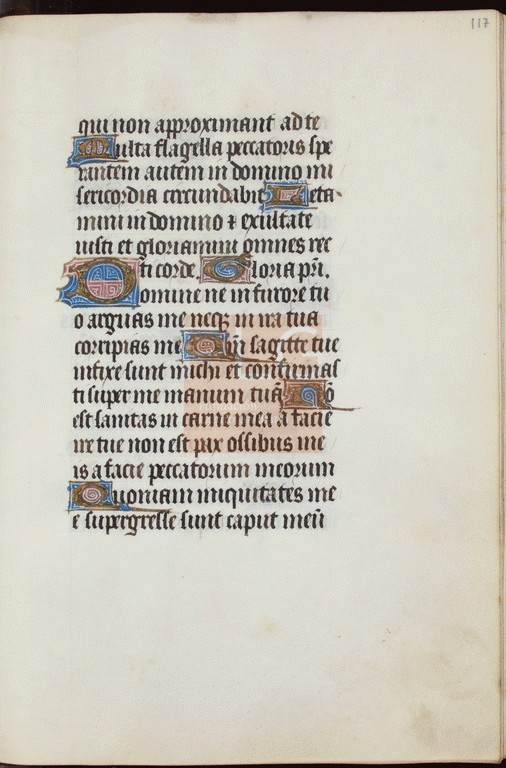 117
qui non approximant ad te
Multa flagella peccatoris spe
rantem autem in domino mi
sericordia circundabit Leta
mini in domino ⁊ exultate
iusti et gloriamini omnes rec
ti corde. Gloria pr̄i.
Domine ne in furore tu
o arguas me neqꝫ in ira tua
corripias me Qm̄ sagitte tue
infixe sunt michi et confirmas
ti super me manum tuā Nō
est sanitas in carne mea a facie
ire tue non est pax ossibus me
is a facie peccatorum meorum
Quoniam iniquitates me
e supergresse sunt caput meū